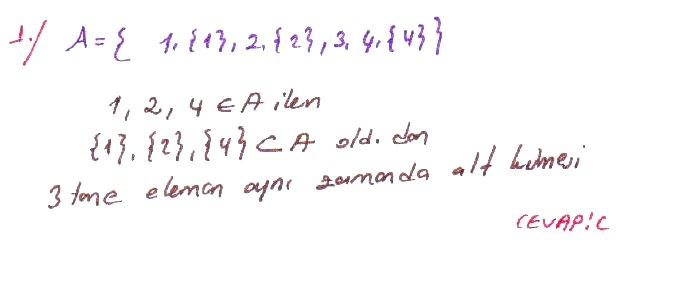 1./ A={ 1, {1}, 2, {2}, 3, 4, {4}}
1, 2, 4 ∈ A iken
{1}, {2}, {4} ⊂ A old. dan
3 tane eleman aynı zamanda alt kümesi
CEVAP: C